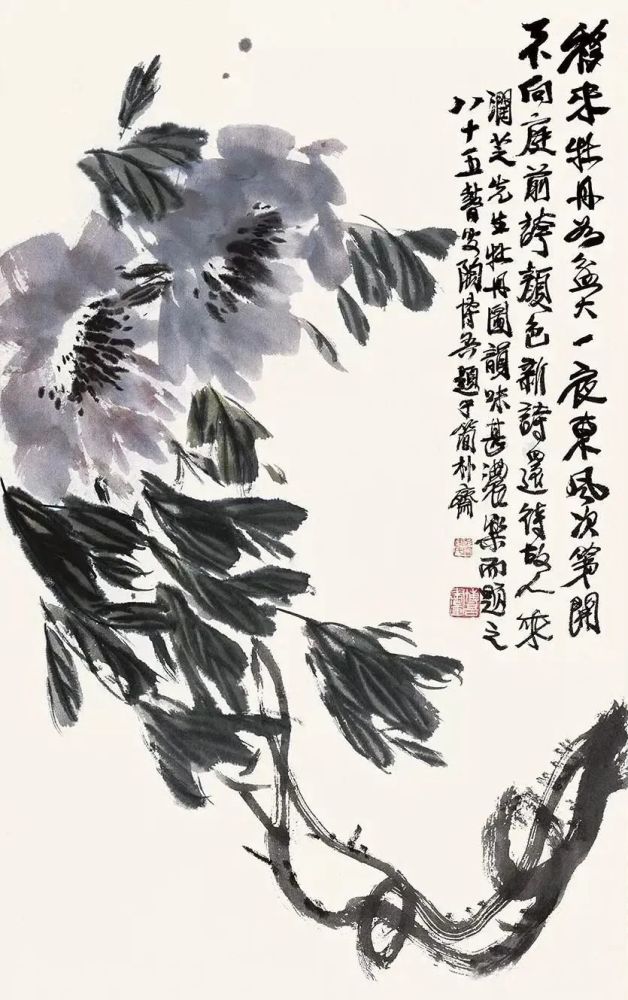 移来牡丹如盆大一夜東風次第開
不向庭前誇顏色新詩還待故人来
潤芝先生牡丹圖韻味甚濃樂而題之
八十五瞽叟陶博吾題于簡朴齋